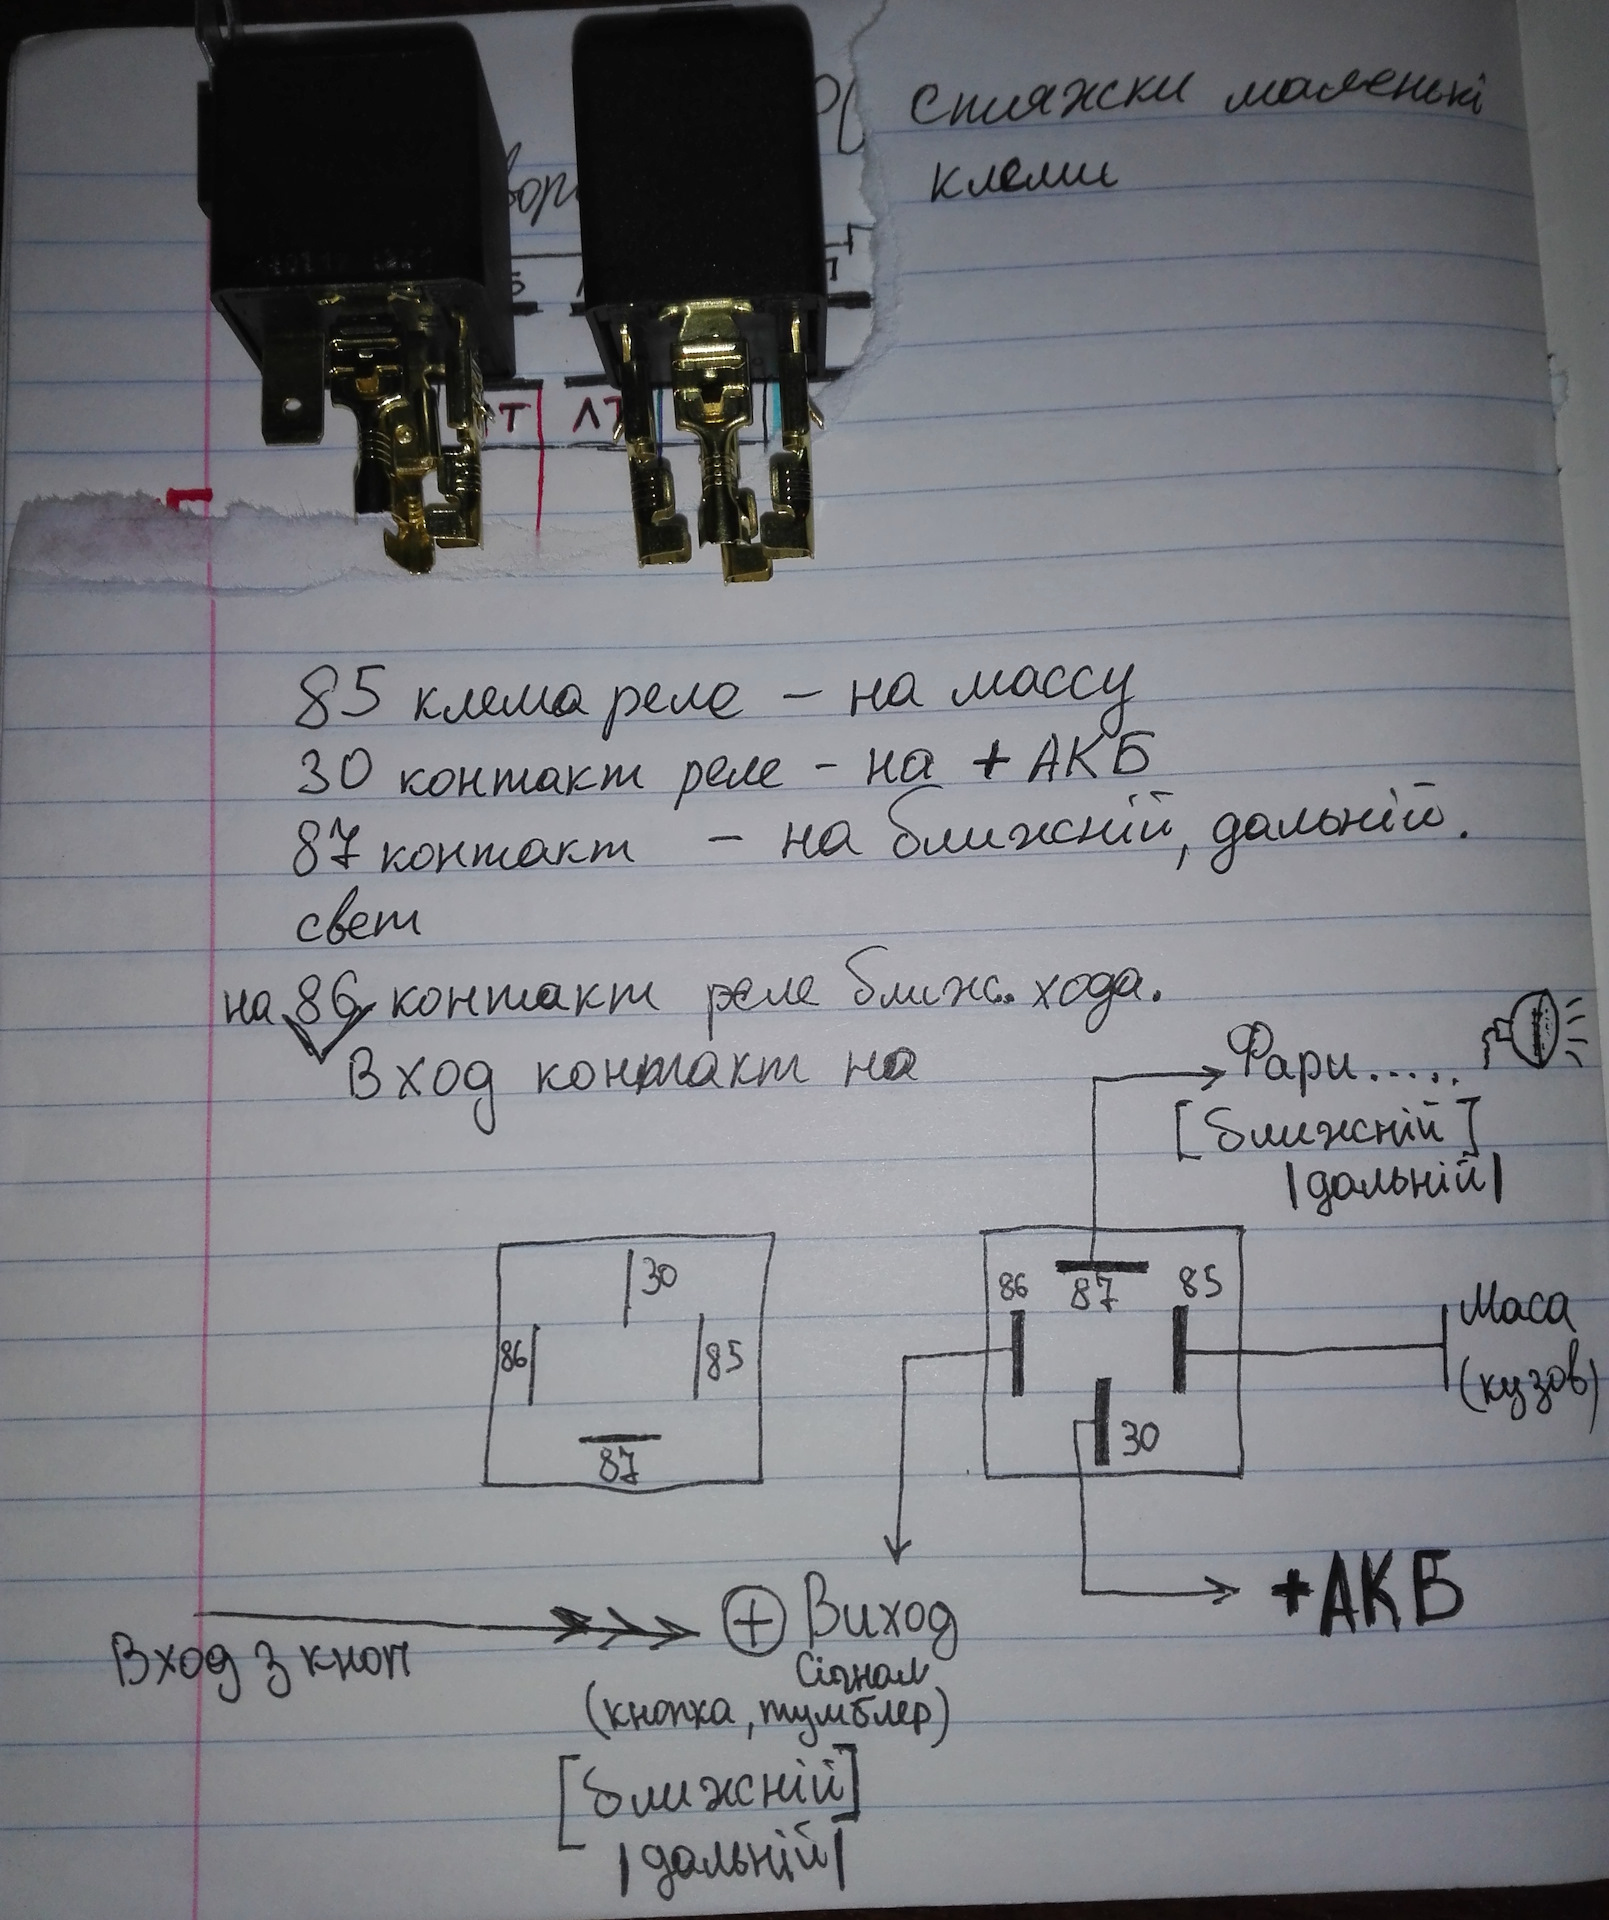 стяжки маленькі
клеми
ЛТ
85 клема реле – на массу
30 контакт реле – на + АКБ
87 контакт – на ближній, дальній.
свет
на 86 контакт реле ближ. хода.
Вход контакт на
Фари.....
[ближній]
|дальній|
30
86
85
87
86
87
85
30
Маса
(кузов)
+АКБ
Вход з кноп
+ Виход
Сігнал
(кнопка, тумблер)
[ближній]
|дальній|